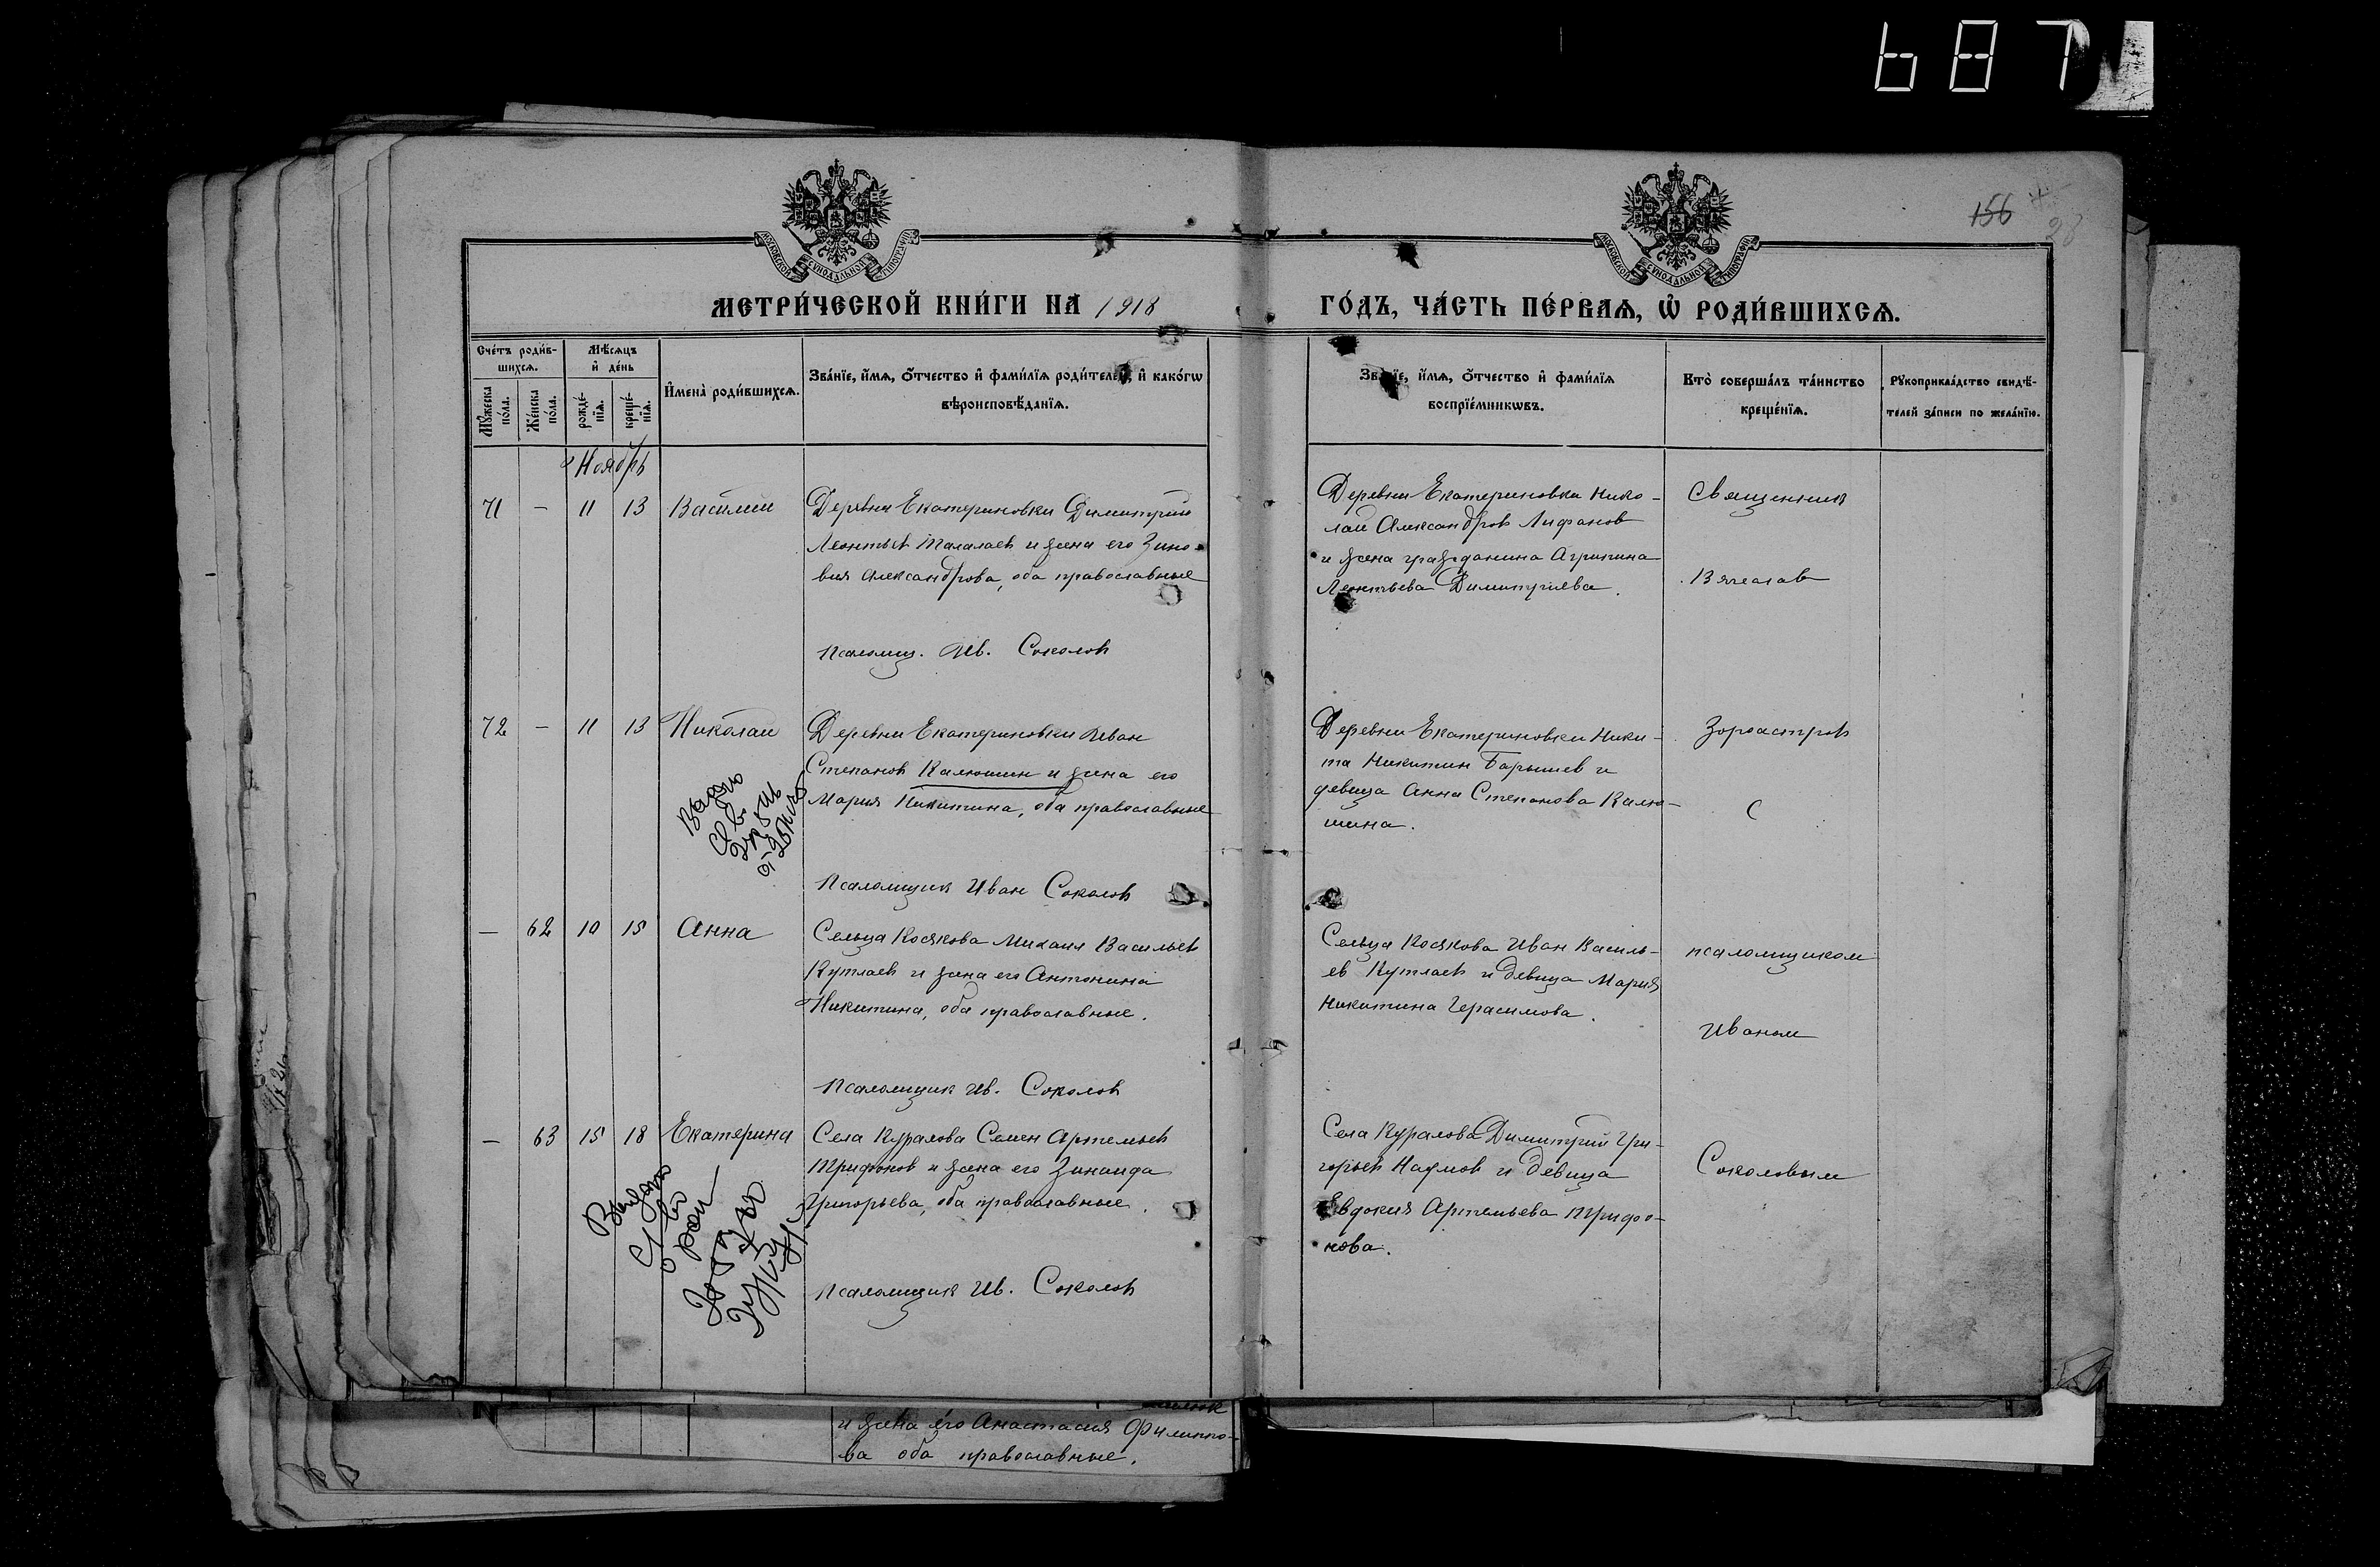 687
156
28
МОСКОВСКОЙ СУНОДАЛЬНОЙ ТИПОГРАФІИ
МОСКОВСКОЙ СУНОДАЛЬНОЙ ТИПОГРАФІИ
МЕТРИ́ЧЕСКОЙ КНИ́ГИ НА 1918
ГО́ДЪ, ЧА́СТЬ ПЕ́РВАЯ, Ѡ҆ РОДИ́ВШИХСЯ.
Сче́тъ роди́в-
шихся.
Мѣ́сяцъ
и҆ де́нь
Мꙋ́жеска
по́ла.
Же́нска
по́ла.
рожде́-
нїя.
креще́-
нїя.
И҆мена̀ роди́вшихся.
Зва́нїе, и҆́мя, ѻ҆́тчество и҆ фами́лїя роди́телей, и҆ како́гѡ
вѣроисповѣ́данїя.
Зва́нїе, и҆́мя, ѻ҆́тчество и҆ фами́лїя
воспрїе́мникѡвъ.
Кто̀ соверша́лъ та́инство
креще́нїя.
Рꙋкоприкла́дство свидѣ́-
телей за́писи по жела́нїю.
Ноябрь
71 – 11 13 Василий
Деревни Екатериновки Димитрий
Леонтьев Талалаев и жена его Зино-
вия Александрова, оба православные
Псаломщ. Ив. Соколов
Деревни Екатериновки Нико-
лай Александров Лифанов
и жена гражданина Агрипина
Леонтьева Димитриева.
Священник
Вячеслав
72 – 11 13 Николай
Деревни Екатериновки Иван
Степанов Калюшин и жена его
Мария Никитина, оба православные
Псаломщик Иван Соколов
Деревни Екатериновки Ники-
та Никитин Барышев и
девица Анна Степанова Калю-
шина.
Зороастров
С
– 62 10 15 Анна
Сельца Косякова Михаил Васильев
Кутлаев и жена его Антонина
Никитина, оба православные.
Псаломщик Ив. Соколов
Сельца Косякова Иван Василь-
ев Кутлаев и девица Мария
Никитина Герасимова.
псаломщиком
Иваном
– 63 15 18 Екатерина
Села Куралова Семен Артемьев
Трифонов и жена его Зинаида
Григорьева, оба православные.
Псаломщик Ив. Соколов
Села Куралова Димитрий Гри-
горьев Наумов и девица
Евдокия Артемьева Трифо-
нова.
Соколовым
Выдано
и жена его Анастасия Филиппо-
ва оба православные.